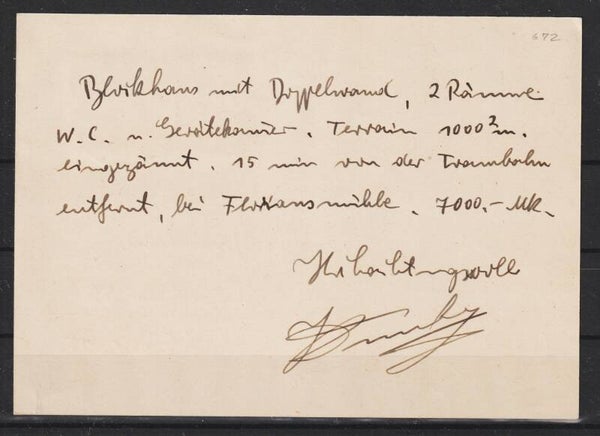 672
Blockhaus mit Doppelwand, 2 Räume
W.C. u. Gerätekammer. Terrain 1000² m.
eingezäunt. 15 min von der Trambahn
entfernt, bei Floriansmühle. 7000.- Mk.
Hochachtungsvoll